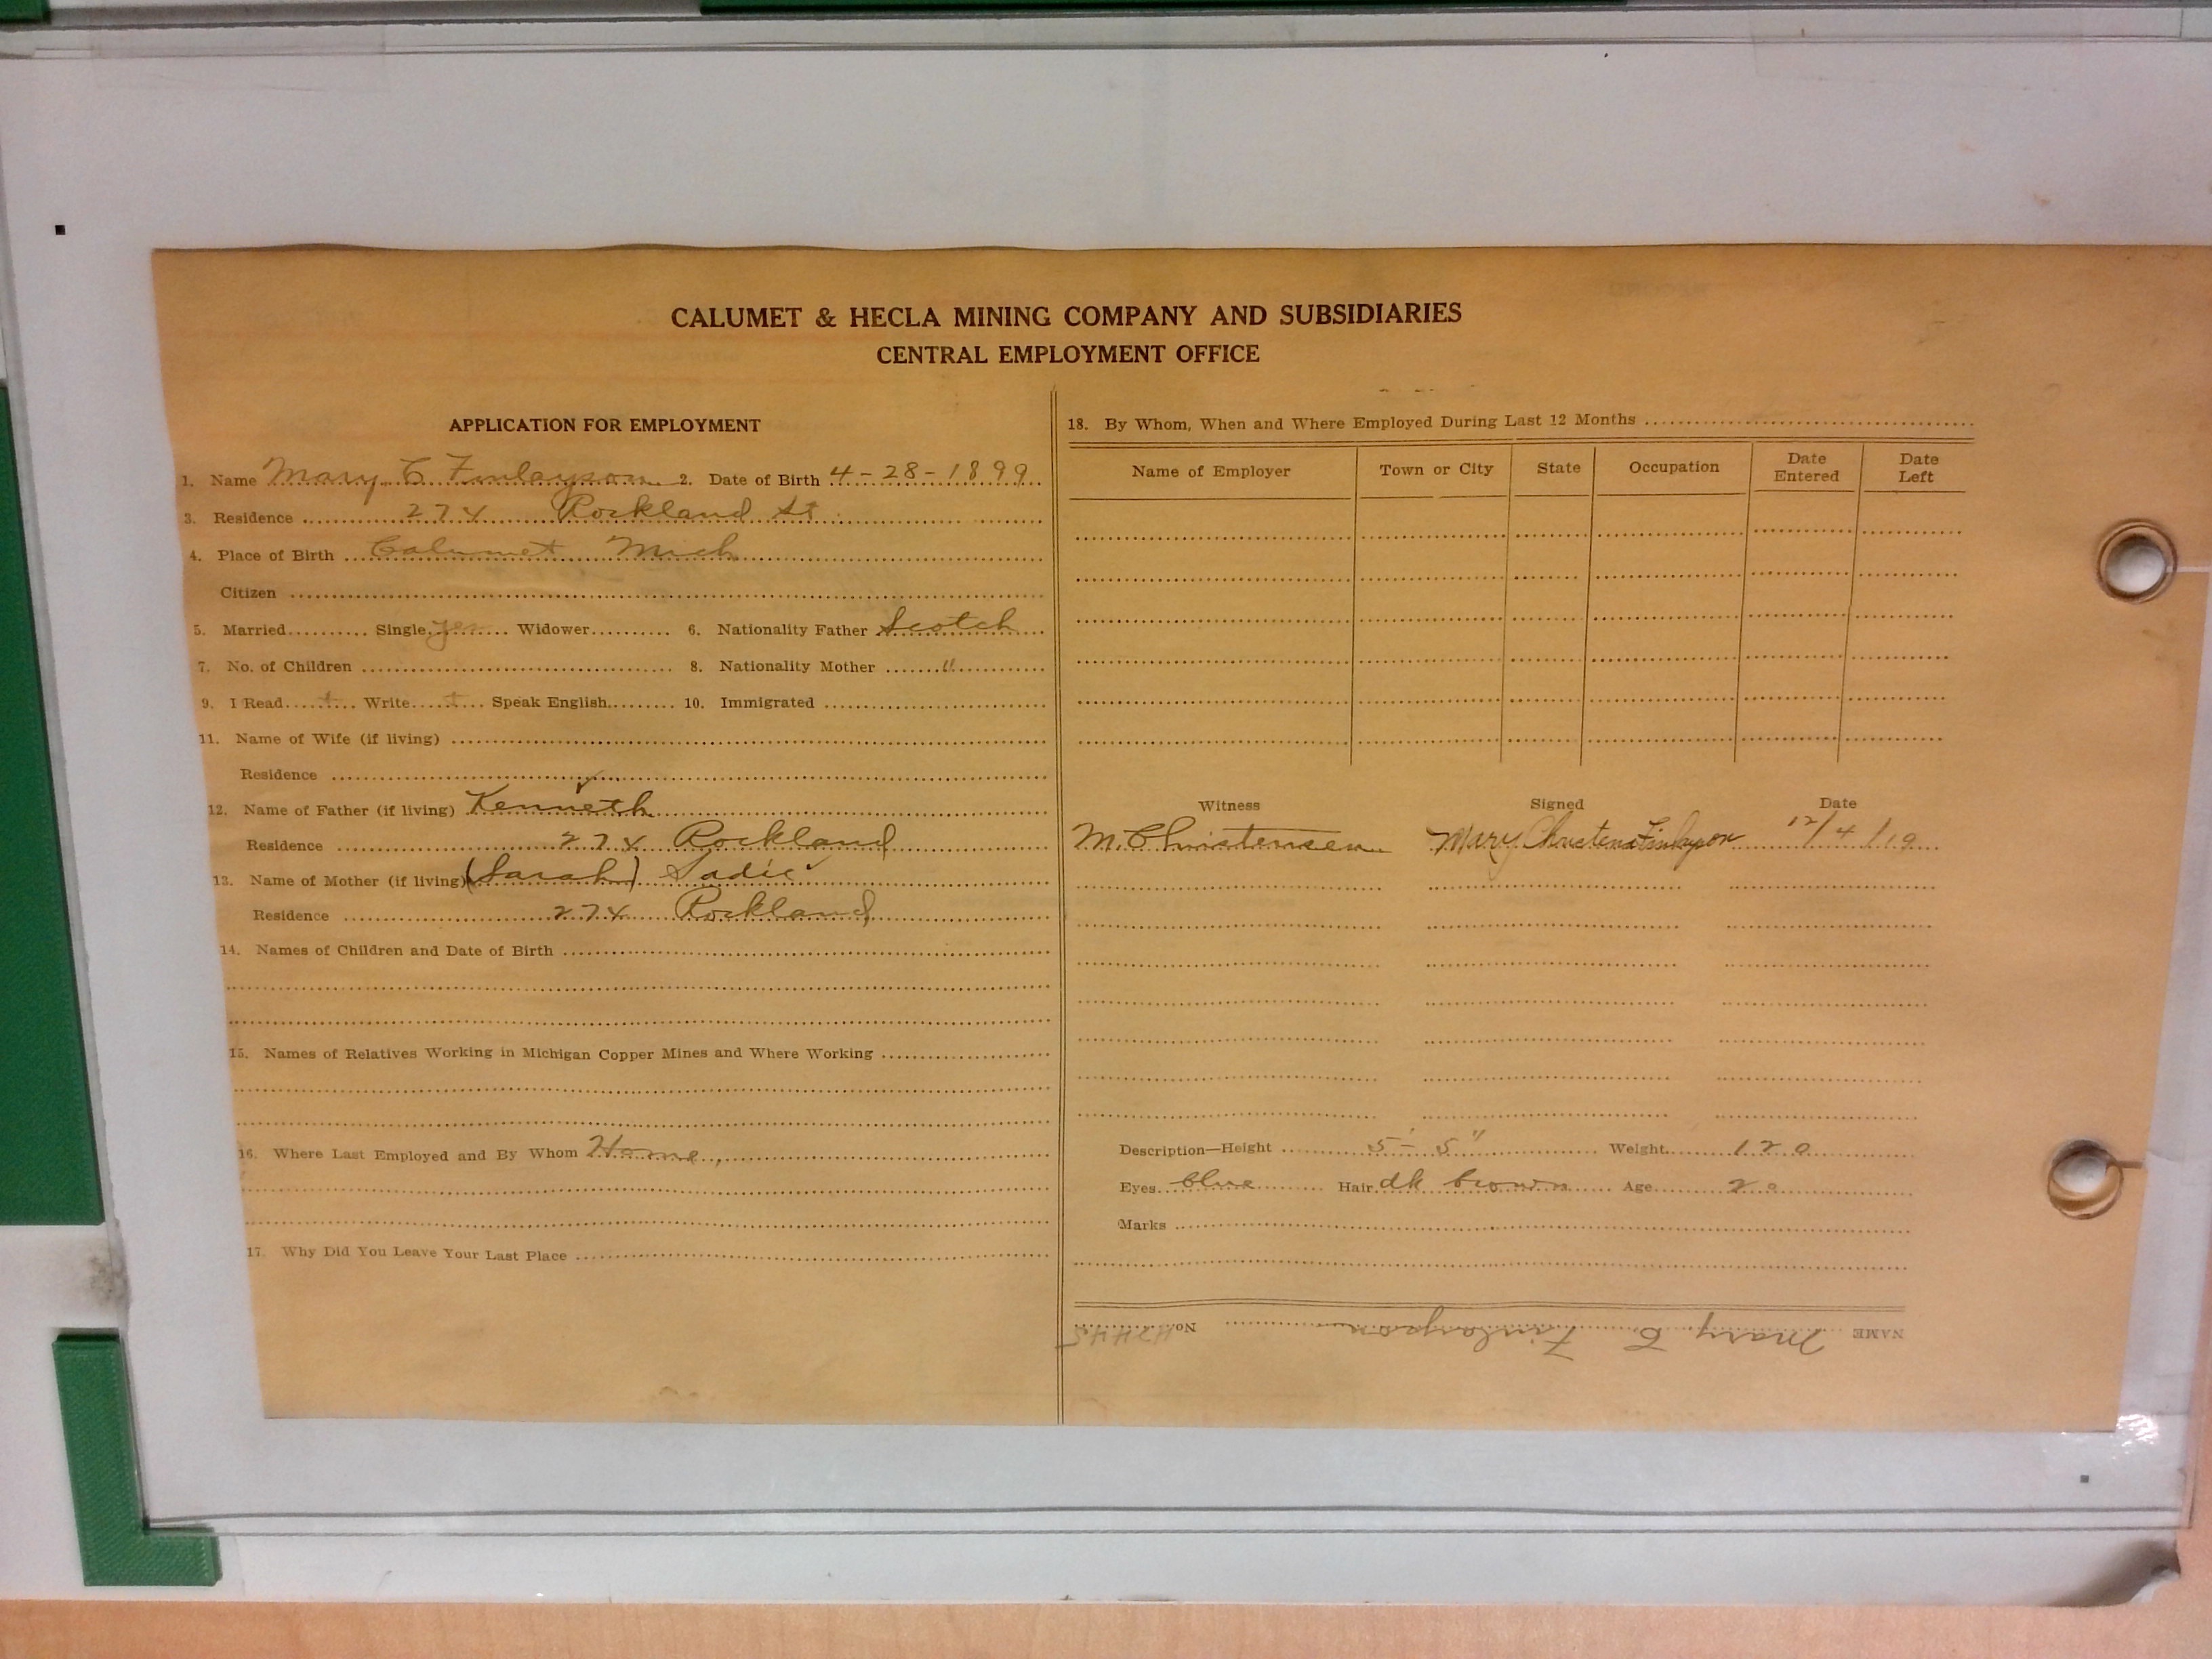 CALUMET & HECLA MINING COMPANY AND SUBSIDIARIES
CENTRAL EMPLOYMENT OFFICE
APPLICATION FOR EMPLOYMENT
1. Name Mary C Finlayson 2. Date of Birth 4-28-1899
3. Residence 274 Rockland St
4. Place of Birth Calumet Mich
Citizen
5. Married Single yes Widower 6. Nationality Father Scotch
7. No. of Children 8. Nationality Mother "
9. I Read + Write + Speak English 10. Immigrated
11. Name of Wife (if living)
Residence
12. Name of Father (if living) Kenneth
Residence 274 Rockland
13. Name of Mother (if living) (Sarah) Sadie
Residence 274 Rockland
14. Names of Children and Date of Birth
15. Names of Relatives Working in Michigan Copper Mines and Where Working
16. Where Last Employed and By Whom Home
17. Why Did You Leave Your Last Place
18. By Whom, When and Where Employed During Last 12 Months
Name of Employer Town or City State Occupation Date Entered Date Left
Witness Signed Date
M. Christensen Mary Christena Finlayson 12/4/19
Description—Height 5'-5" Weight 120
Eyes blue Hair dk brown Age 20
Marks
NAME Mary C. Finlayson No. H2445